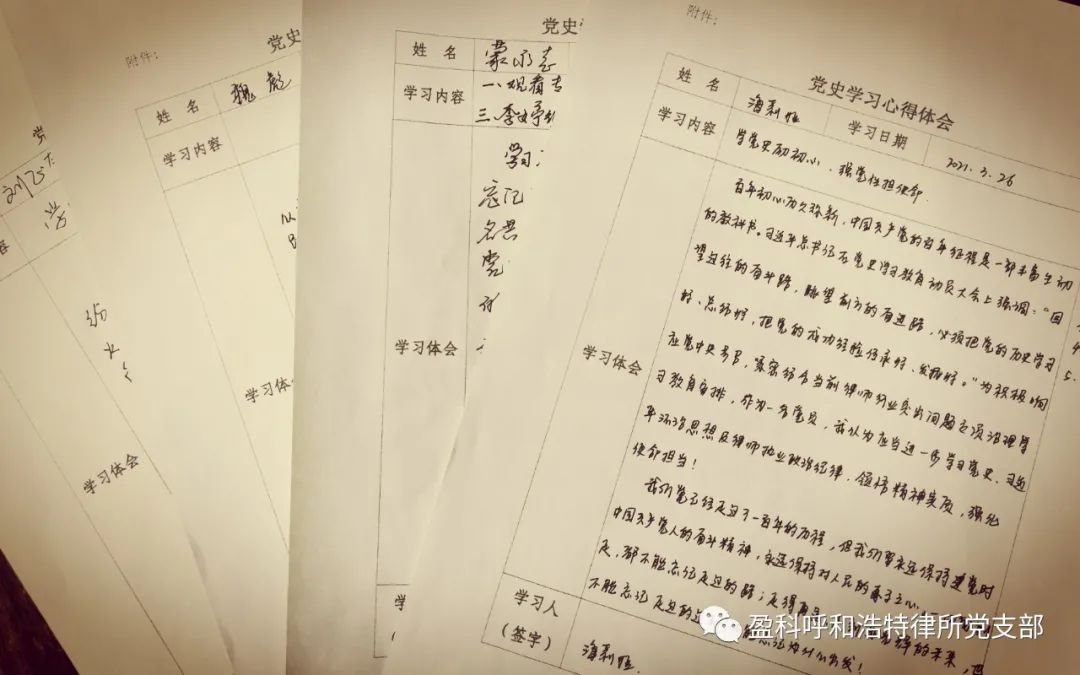 附件：
党史
姓 名
魏彪
学习内容
学习体
学习体会
党史
姓 名
蒙永志
学习内容
一、观看专
三、李
学习
忘记
名共
党
学习体会
学
附件：
党史学习心得体会
姓 名
海利恒
学习日期
2021.3.26
学习内容
学党史励初心、强党性担使命
学习体会
百年初心历久弥新，中国共产党的百年征程是一部丰富生动
的教科书。习近平总书记在党史学习教育动员大会上强调："回
望过往的奋斗路，眺望前方的奋进路，必须把党的历史学习
好、总结好，把党的成功经验传承好、发扬好。"为积极响
应党中央号召，紧密结合当前律师行业突出问题专项治理学
习教育安排，作为一名党员，我认为应当进一步学习党史、习近
平法治思想及律师执业政治纪律，领悟精神实质，强化
使命担当！
我们党已经走过了一百年的历程，但我们要永远保持建党时
中国共产党人的奋斗精神，永远保持对人民的赤子之心。
走，都不能忘记走过的路；走得再 的未来，也
不能忘记走过的过 忘记为什么出发！
学习人
（签字）
海利恒
盈科呼和浩特律所党支部